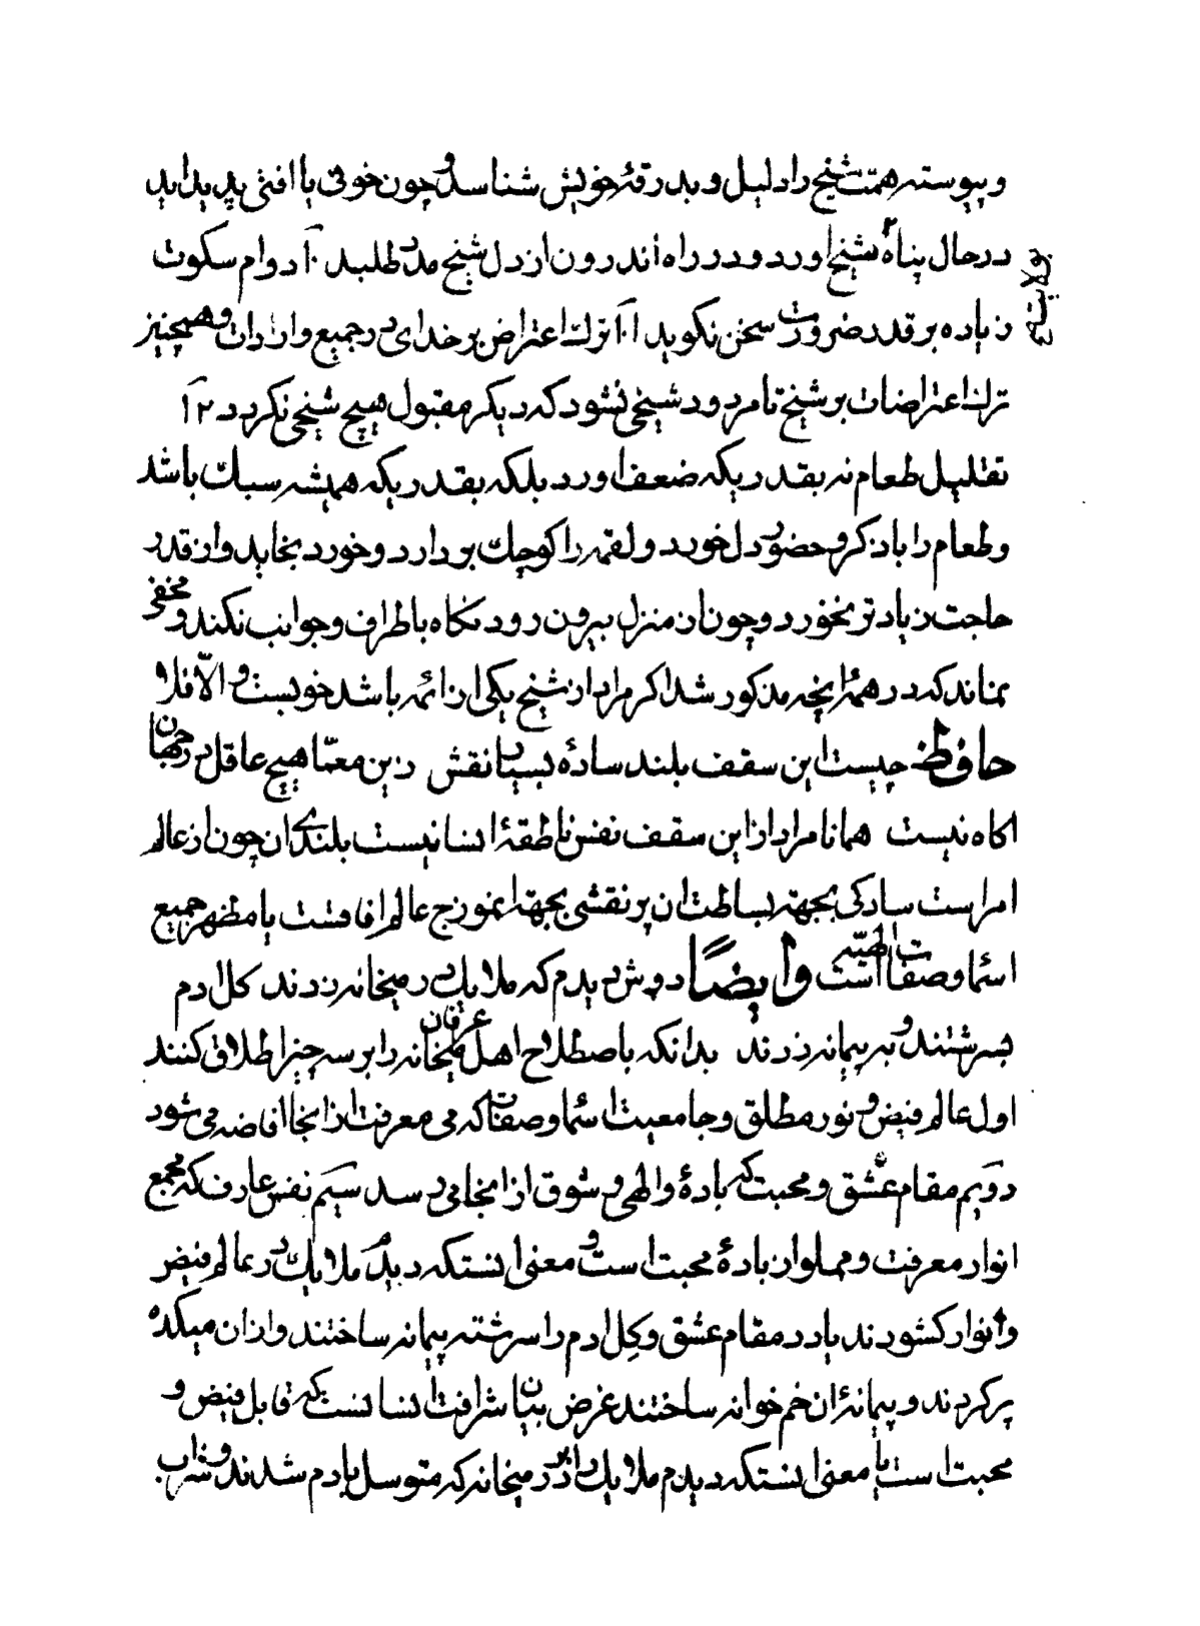 و پیوسته همت شیخ را دلیل و بدرقهٔ خویش شناسد و چون خوفی یا افتی پدید اید
در حال پناه شیخ اورد و در راه اندرون از دل شیخ مدد طلبد ۱۰ دوام سکوت
زیاده بر قدر ضرورت سخن نکوید ۱۱ ترك اعتراض بر خدای در جمیع واردات و همچنین
ترك اعتراضات بر شیخ تا مردود شیخی نشود که دیکر مقبول هیچ شیخی نکردد ۱۲
تقلیل طعام نه بقدریکه ضعف اورد بلکه بقدریکه همیشه سبك باشد
و طعام را با ذکر و حضور دل خورد و لقمه را کوچك بردارد و خورد بخاید و از قدر
حاجت زیادتر نخورد و چون از منزل بیرون رود نکاه باطراف و جوانب نکند و مخفی
نماند که در همهٔ انچه مذکور شد اکر مراد از شیخ یکی از ائمه باشد خوبست و الّا فلا
حافظ چیست این سقف بلند سادهٔ بسیار نقش زین معمّا هیچ عاقل در جهان
اکاه نیست همانا مراد از این سقف نفس ناطقهٔ انسانیست بلندی ان چون از عالم
امراست سادکی بجهته بساطت ان پر نقشی بجهته انموزج عالم افاقست یا مظهر جمیع
اسما و صفات الهیّه است وایضًا دوش دیدم که ملایك در میخانه زدند کل ادم
بسرشتند و به پیمانه زدند بدانکه باصطلاح اهل عرفان میخانه را بر سه چیز اطلاق کنند
اول عالم فیض و نور مطلق و جامعیت اسما و صفات که می معرفت از انجا افاضه می شود
دویم مقام عشق و محبت که بادهٔ والهی و شوق از انجا میرسد سیّم نفس عارف که مجمع
انوار معرفت و مملو از بادهٔ محبت است و معنی اینستکه دیدم ملایك در عالم فیض
و انوار کشودند یا در مقام عشق و کِل ادم را سرشته پیمانه ساختند و از ان میکده
پر کردند و پیمانهٔ ان خم خوانه ساختند غرض بیان شرافت انسانست که قابل فیض و
محبت است یا معنی اینستکه دیدم ملایك را در در میخانه که متوسل بادم شدند و شراب